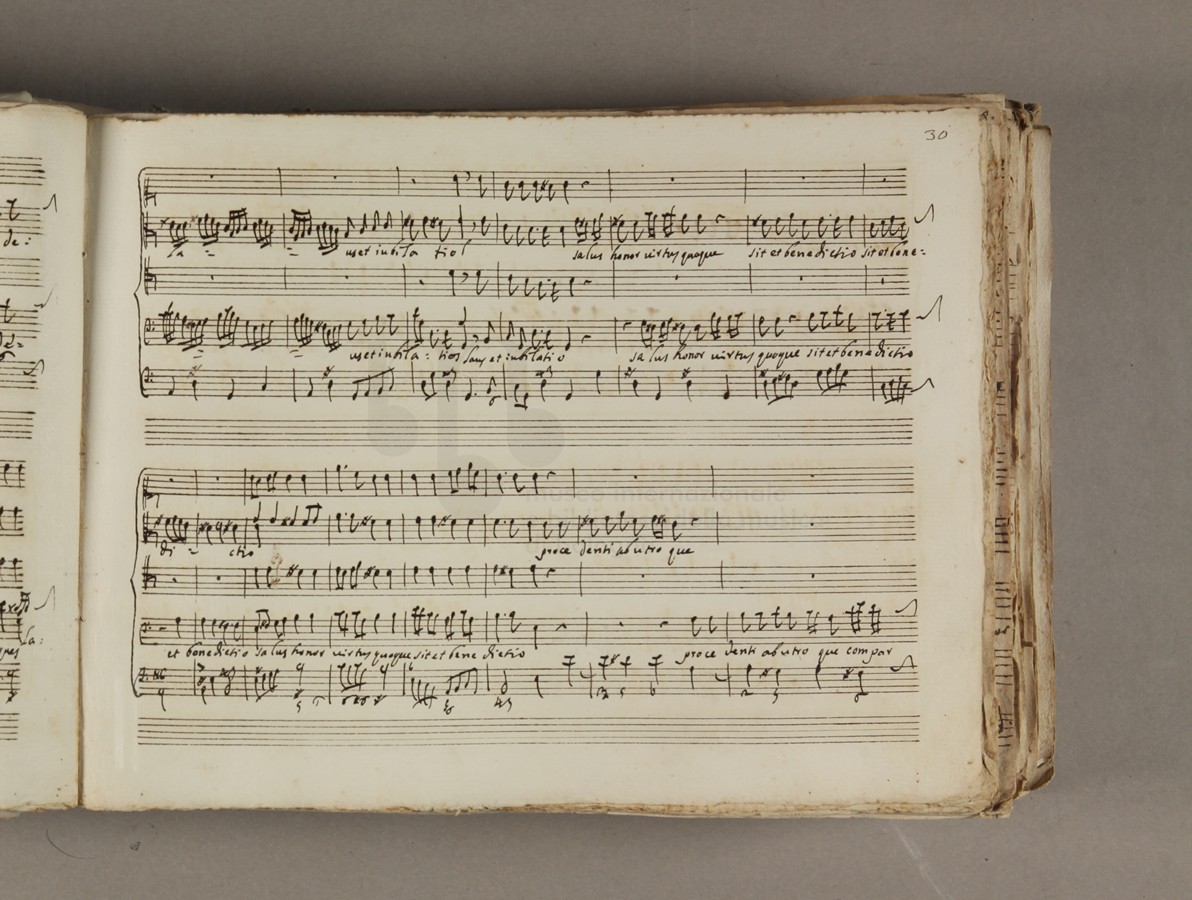 30
de:
La us et iubila tio salus honor virtus quoque sit et bene dictio sit et bene:
us et iubila: tio laus et iubilatio salus honor virtus quoque sit et bene dictio
di ctio proce denti ab utro que
la:
et bene dictio salus honor virtus quoque sit et bene dictio proce denti ab utro que compar
museo internazionale